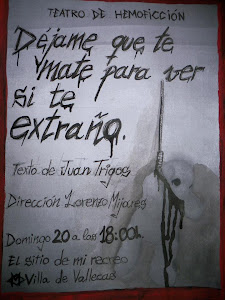 TEATRO DE HEMOFICCIÓN
Déjame que te
mate para ver
si te
extraño.
Texto de Juan Trigos
Dirección Lorenzo Mijares
Domingo 20 a las 18:00h.
y
El sitio de mi recreo
Villa de Vallecas